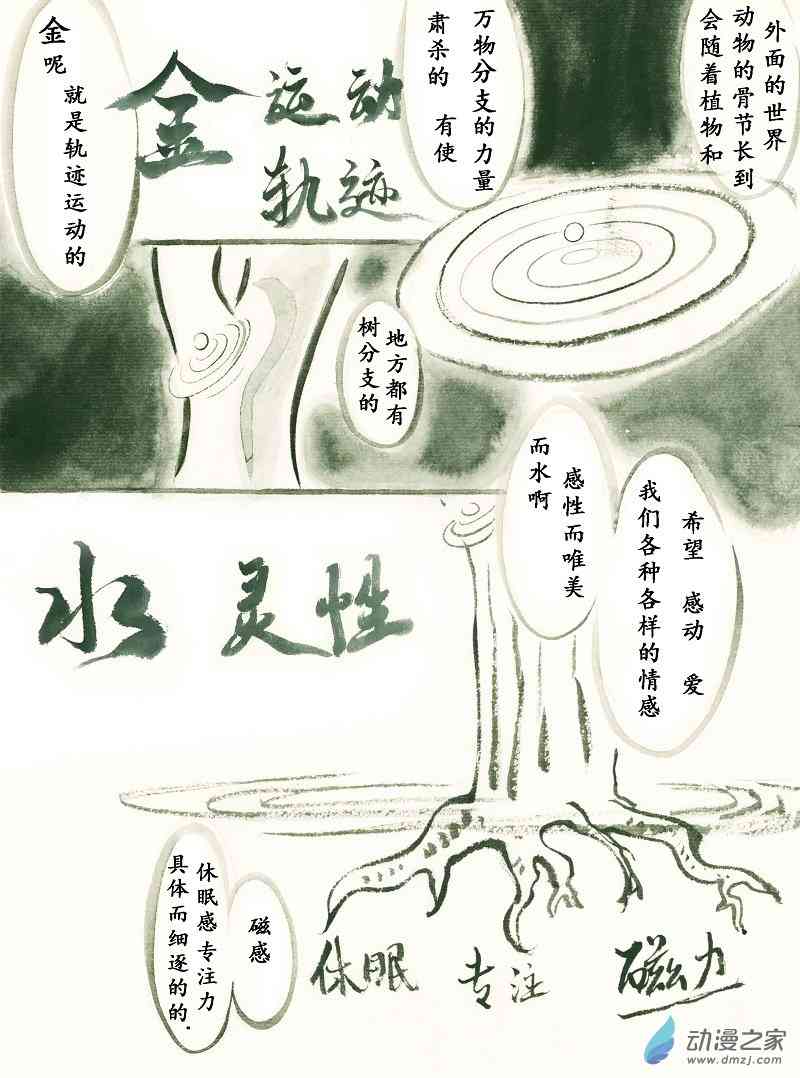 金呢
就是轨迹运动的
金 运动
轨迹
肃杀的 有使
万物分支的力量
会随着植物和
动物的骨节长到
外面的世界
树分支的
地方都有
水 灵性
而水啊
感性而唯美
我们各种各样的情感
希望 感动 爱
具体而细逐的的.
休眠感 专注力
磁感
休眠 专注 磁力
动漫之家
www.dmzj.com